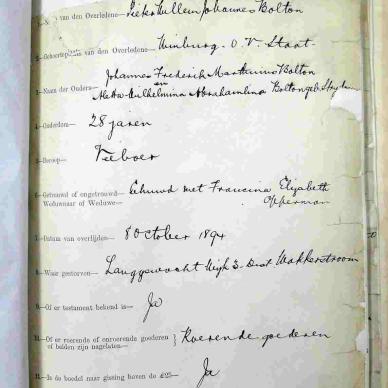 1.—N van den Overledene— Pieter Willem Johannes Bolton
2.—Geboorteplaats van den Overledene— Winburg. O. V. Staat.
3.—Naam der Ouders— Johannes Frederik Marthinus Bolton
en
Aletta Wilhelmina Abrahamlina Bolton geb.
4.—Ouderdom— 28 jaren
5.—Beroep— Veeboer
6.—Getrouwd of ongetrouwd— Gehuwd met Francina Elizabeth
Weduwnaar of Weduwe— Opperman
7.—Datum van overlijden— 8 October 1894
8.—Waar gestorven— Langgewacht Wijk 3. Dist. Wakkerstroom
9.—Of er testament bekend is— Ja
10.—Of er roerende of onroerende goederen } Roerende goederen
of beiden zijn nagelaten—
11.—Is de boedel naar gissing boven de £25— Ja